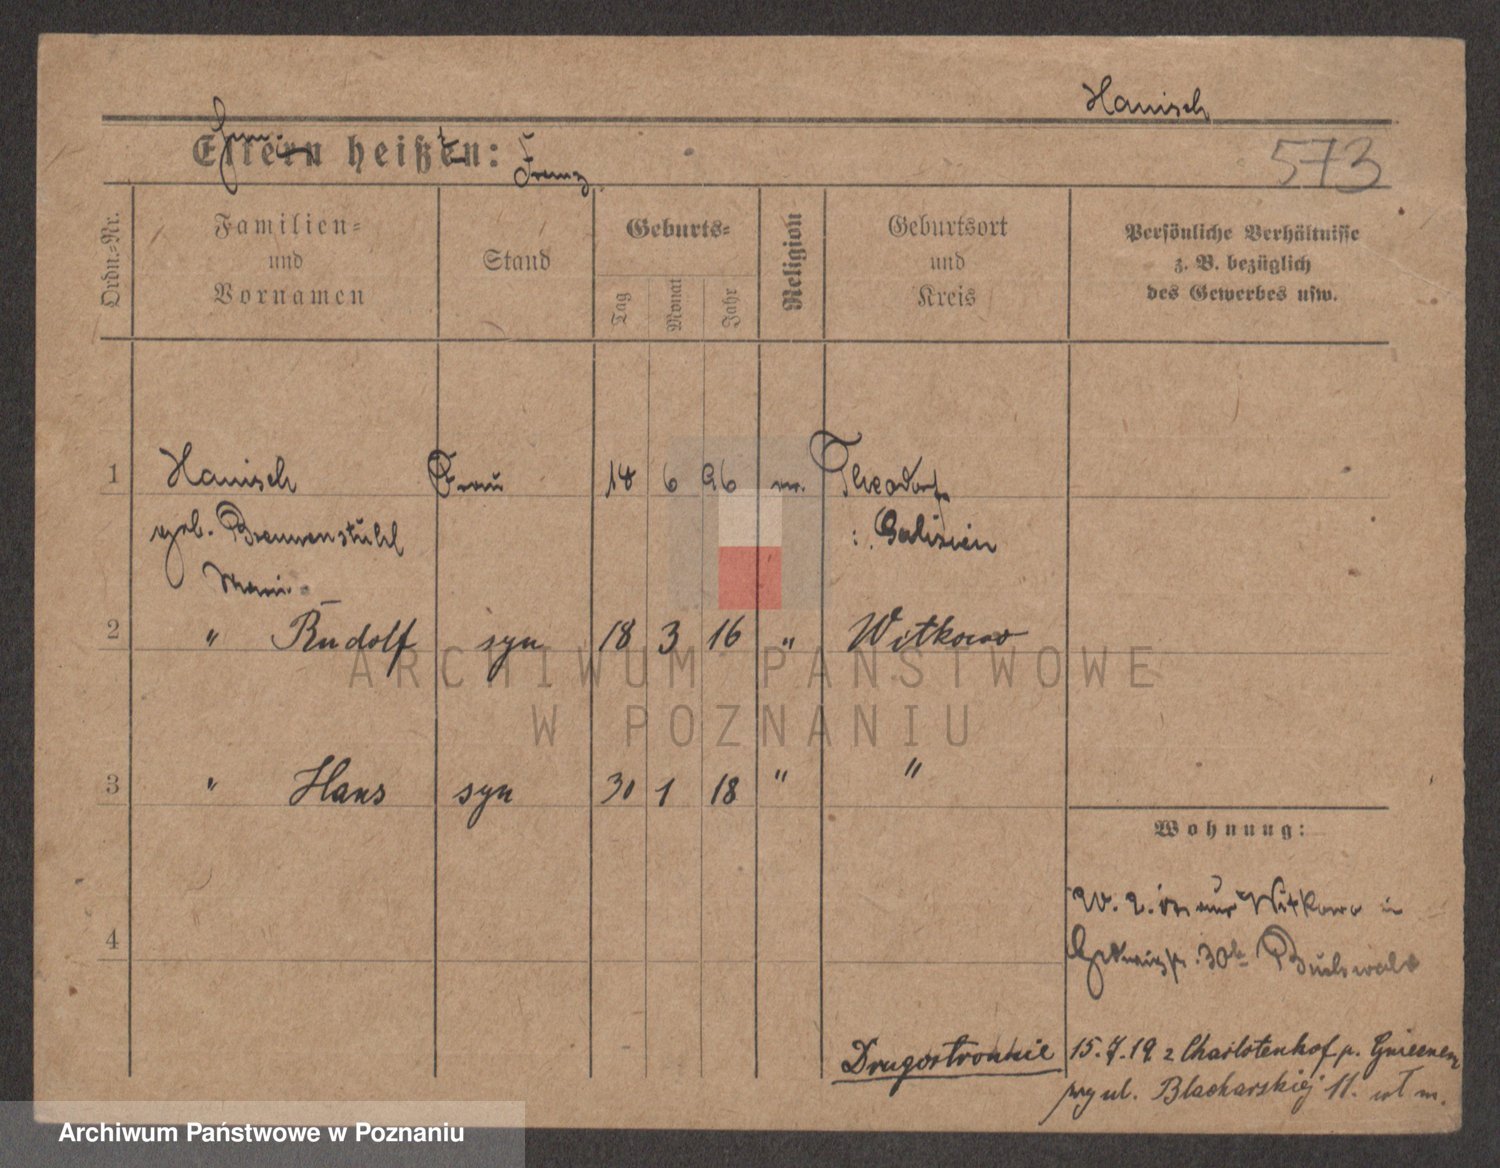 Hanisch
Eltern heißen: Franz
573
Ordn.-Nr.
Familien-
und
Vornamen
Stand
Geburts-
Tag
Monat
Jahr
Religion
Geburtsort
und
Kreis
Persönliche Verhältnisse
z. B. bezüglich
des Gewerbes usw.
1 Hanisch Frau 18 6 96 Theodorf
geb. Brennenstuhl : Galizien
2 " Rudolf syn 18 3 16 " Witkowo
ARCHIWUM PAŃSTWOWE
W POZNANIU
3 " Hans syn 30 1 18 " "
Wohnung:
Witkowo in
4
30 Buchwald
Drugostronnie 15.7.19 z Charlotenhof p. Gnieznem
ul. Blacharskiej 11.
Archiwum Państwowe w Poznaniu